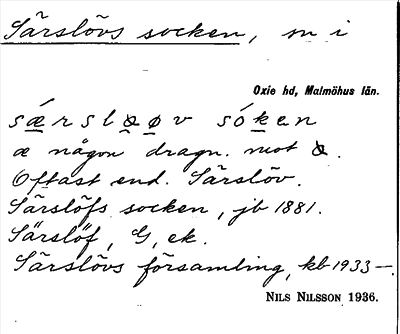 Särslövs socken, sn i
Oxie hd, Malmöhus län.
sǽrslꝏøv sóken
æ någon dragn. mot a.
Oftast end. Särslöv.
Särslöfs socken, jb 1881.
Särslöf, G, ek.
Särslövs församling, kb 1933–.
NILS NILSSON 1936.